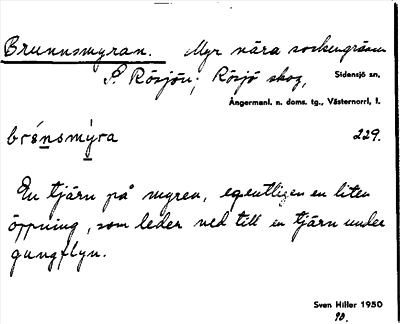 Brunnsmyran. Myr nära sockengränsen
S. Rösjön; Rösjö skog, Sidensjö sn,
Ångermanl. n. doms. tg., Västernorrl. l.
brénsmýra 229.
En tjärn på myren, egentligen en liten
öppning, som leder ned till en tjärn under
gungflyn.
Sven Hiller 1950
90.